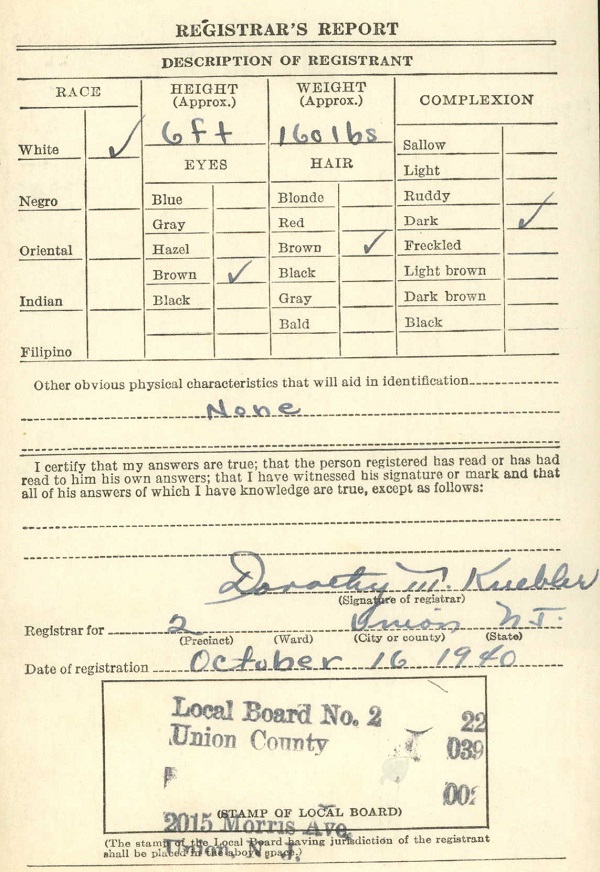 REGISTRAR'S REPORT
DESCRIPTION OF REGISTRANT
RACE
HEIGHT
(Approx.)
WEIGHT
(Approx.)
COMPLEXION
6ft
160 lbs
White ✓
EYES
HAIR
Sallow
Light
Negro
Blue
Blonde
Ruddy
Gray
Red
Dark ✓
Oriental
Hazel
Brown ✓
Freckled
Brown ✓
Black
Light brown
Indian
Black
Gray
Dark brown
Bald
Black
Filipino
Other obvious physical characteristics that will aid in identification
None
I certify that my answers are true; that the person registered has read or has had
read to him his own answers; that I have witnessed his signature or mark and that
all of his answers of which I have knowledge are true, except as follows:
Dorothy M. Kuebler
(Signature of registrar)
Registrar for 2 Union N.J.
(Precinct) (Ward) (City or county) (State)
Date of registration October 16 1940
Local Board No. 2 22
Union County 039
002
(STAMP OF LOCAL BOARD)
2015 Morris Ave.
(The stamp of the Local Board having jurisdiction of the registrant
shall be placed in the above space.)
Union, N. J.